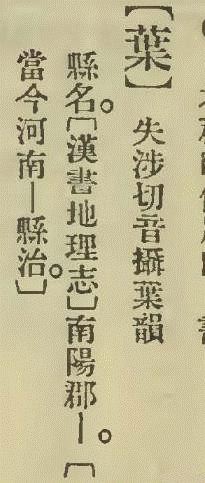 【葉】失涉切音攝葉韻
縣名。〔漢書地理志〕南陽郡—。〔
當今河南—縣治。〕